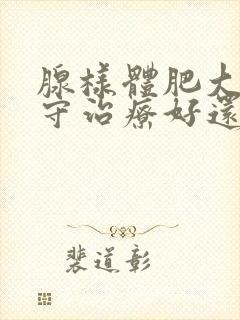 腺樣體肥大
守治療好還
裴道彰